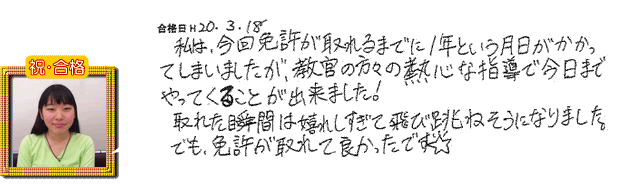 合格日 H20.3.18
私は、今回免許が取れるまでに1年という月日がかかっ
てしまいましたが、教官の方々の熱心な指導で今日まで
やってくることが出来ました!
取れた瞬間は嬉れしすぎて飛び跳ねそうになりました。
でも、免許が取れて良かったです☆
祝・合格